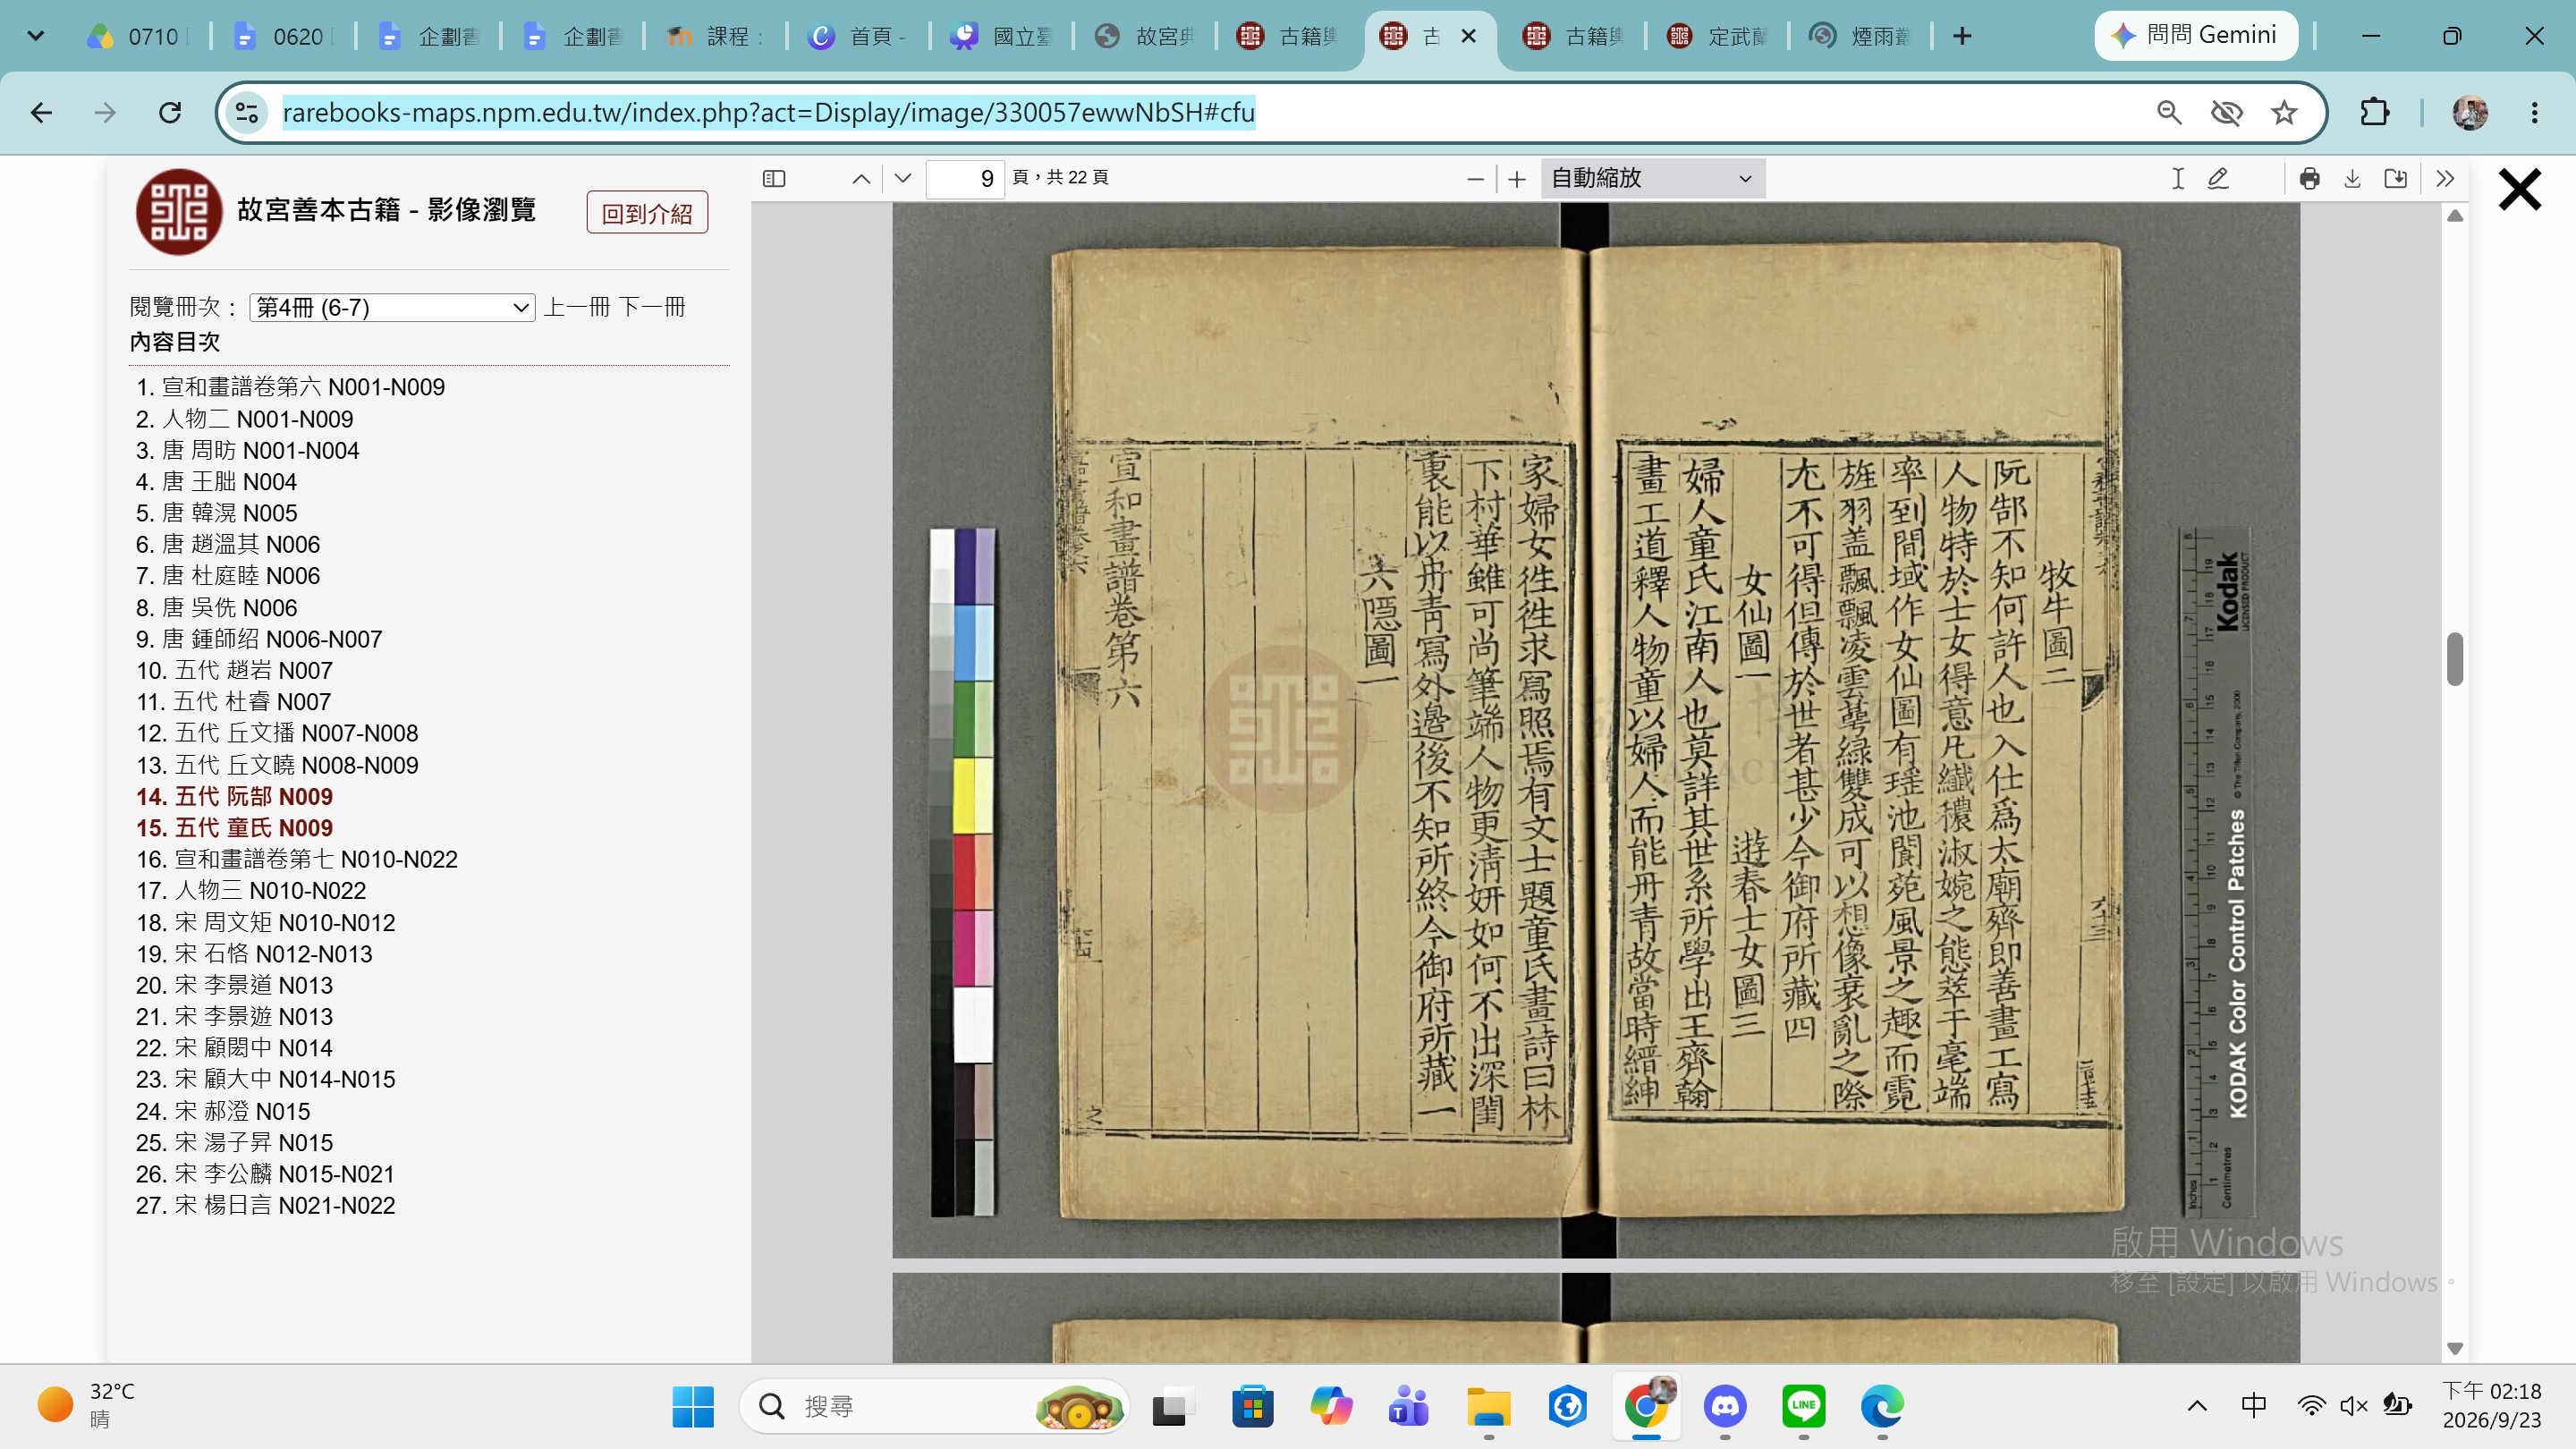 0710
0620
企劃書
企劃書
課程：
首頁 -
國立臺
故宮典
古籍輿
古
古籍輿
定武蘭
煙雨叢
問問 Gemini
rarebooks-maps.npm.edu.tw/index.php?act=Display/image/330057ewwNbSH#cfu
故宮善本古籍 - 影像瀏覽
回到介紹
閱覽冊次： 第4冊 (6-7) 上一冊 下一冊
內容目次
1. 宣和畫譜卷第六 N001-N009
2. 人物二 N001-N009
3. 唐 周昉 N001-N004
4. 唐 王朏 N004
5. 唐 韓滉 N005
6. 唐 趙溫其 N006
7. 唐 杜庭睦 N006
8. 唐 吳侁 N006
9. 唐 鍾師绍 N006-N007
10. 五代 趙岩 N007
11. 五代 杜睿 N007
12. 五代 丘文播 N007-N008
13. 五代 丘文曉 N008-N009
14. 五代 阮郜 N009
15. 五代 童氏 N009
16. 宣和畫譜卷第七 N010-N022
17. 人物三 N010-N022
18. 宋 周文矩 N010-N012
19. 宋 石恪 N012-N013
20. 宋 李景道 N013
21. 宋 李景遊 N013
22. 宋 顧閎中 N014
23. 宋 顧大中 N014-N015
24. 宋 郝澄 N015
25. 宋 湯子昇 N015
26. 宋 李公麟 N015-N021
27. 宋 楊日言 N021-N022
9 頁，共 22 頁
自動縮放
牧牛圖二
阮郜不知何許人也入仕爲太廟齊即善畫工寫
人物特於士女得意凡纖穠淑婉之態萃于毫端
率到閬域作女仙圖有瑶池閬苑風景之趣而霓
旌羽盖飄飄凌雲萼綠雙成可以想像衰亂之際
尤不可得但傳於世者甚少今御府所藏四
女仙圖一 遊春士女圖三
婦人童氏江南人也莫詳其世系所學出王齊翰
畫工道釋人物童以婦人而能丹青故當時縉紳
家婦女徃徃求寫照焉有文士題童氏畫詩曰林
下材華雖可尚筆端人物更清妍如何不出深閨
裏能以丹青寫外邊後不知所終今御府所藏一
六隱圖一
宣和畫譜卷第六
Kodak
LICENSED PRODUCT
© The Tiffen Company, 2000
KODAK Color Control Patches
Inches
Centimetres
啟用 Windows
移至 [設定] 以啟用 Windows。
32°C
晴
搜尋
LINE
中
下午 02:18
2026/9/23